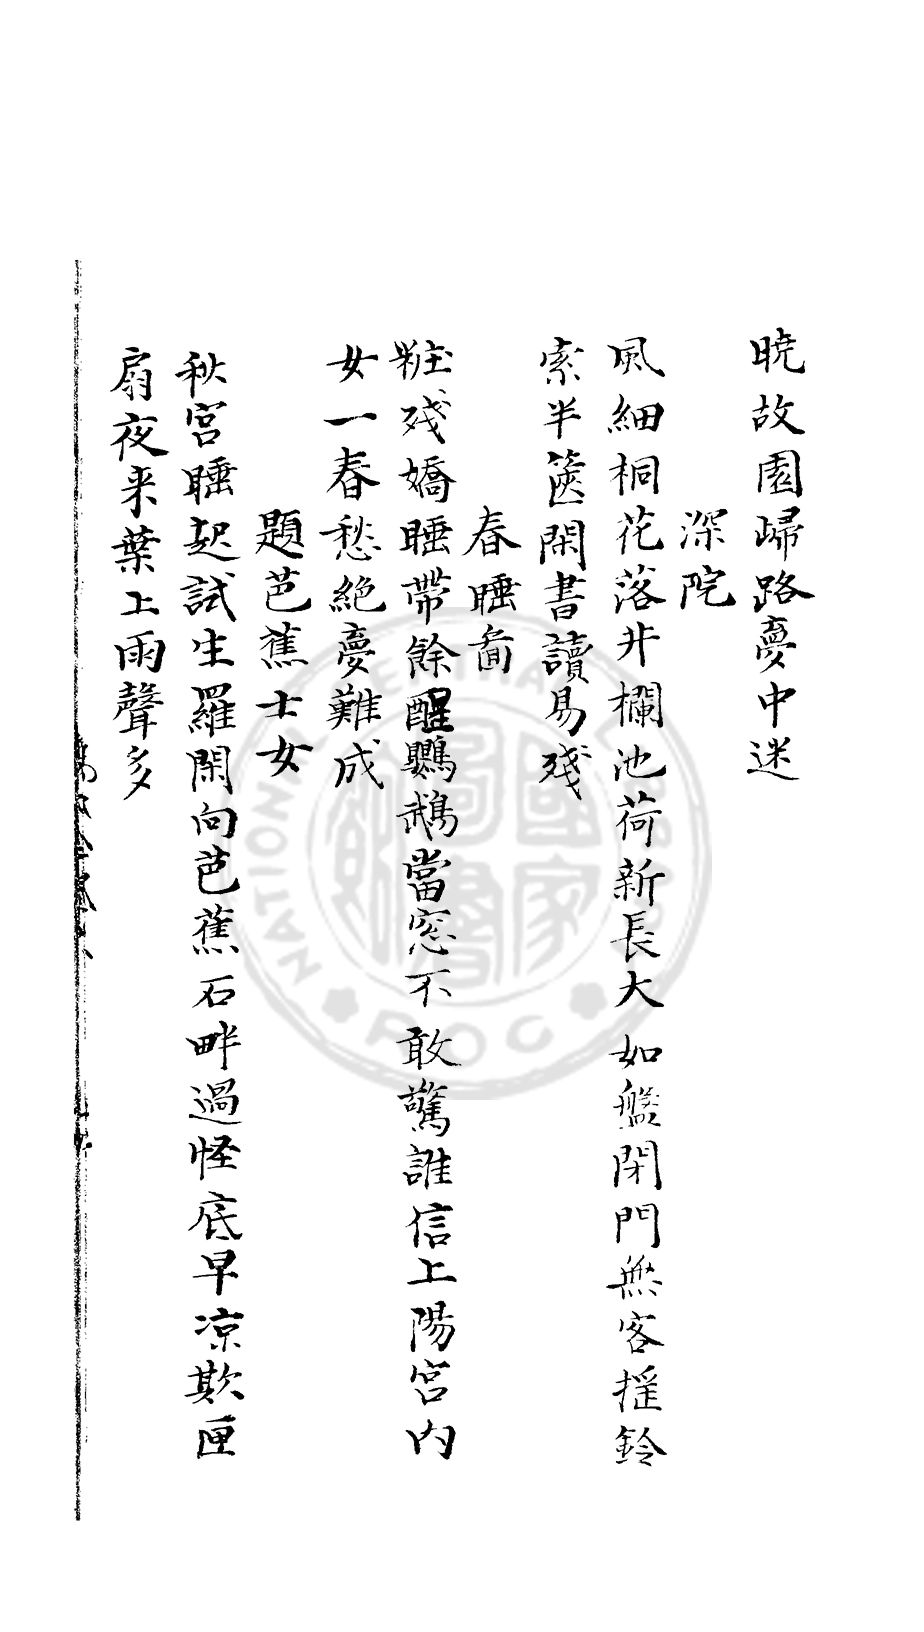 曉故園歸路夢中迷
深院
風細桐花落井欄池荷新長大如盤閉門無客揺鈴
索半篋閑書讀易殘
春睡啚
粧殘嬌睡帶餘醒鸚鵡當窓不敢驚誰信上陽宮內
女一春愁絕夢難成
題芭蕉士女
秋宮睡起試生羅閑向芭蕉石畔過怪底早凉欺匣
扇夜来葉上雨聲多
NATIONAL CENTRAL LIBRARY R.O.C